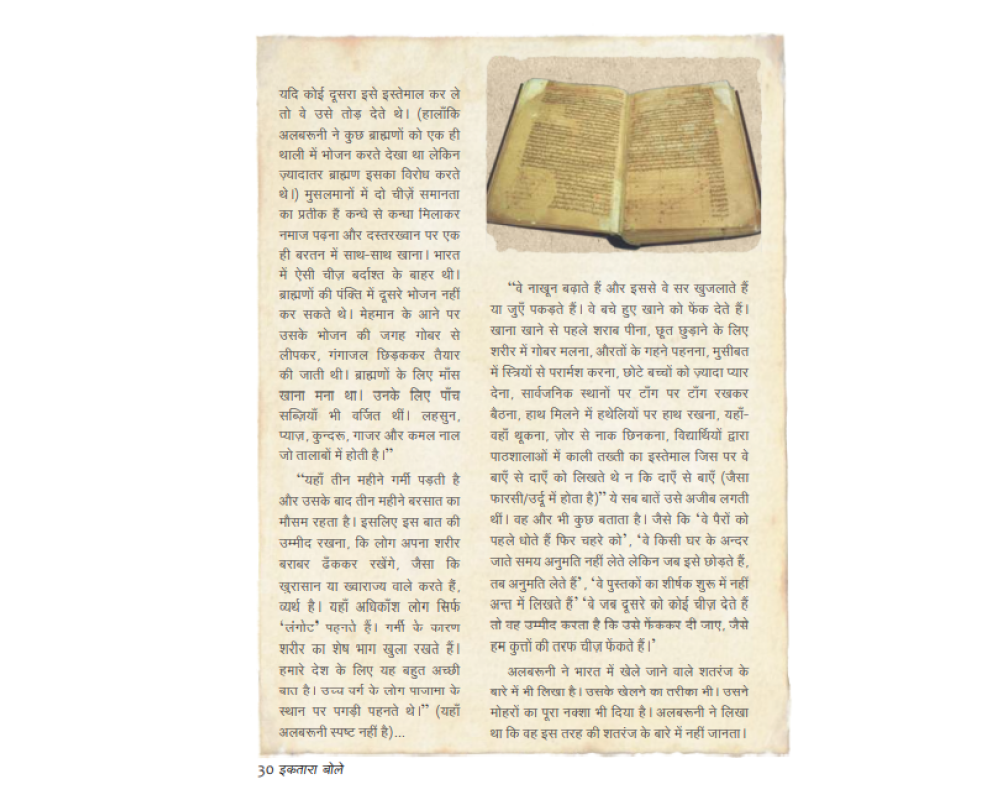 यदि कोई दूसरा इसे इस्तेमाल कर ले
तो वे उसे तोड़ देते थे। (हालाँकि
अलबरूनी ने कुछ ब्राह्मणों को एक ही
थाली में भोजन करते देखा था लेकिन
ज़्यादातर ब्राह्मण इसका विरोध करते
थे।) मुसलमानों में दो चीज़ें समानता
का प्रतीक हैं कन्धे से कन्धा मिलाकर
नमाज पढ़ना और दस्तरख्वान पर एक
ही बरतन में साथ-साथ खाना। भारत
में ऐसी चीज़ बर्दाश्त के बाहर थी।
ब्राह्मणों की पंक्ति में दूसरे भोजन नहीं
कर सकते थे। मेहमान के आने पर
उसके भोजन की जगह गोबर से
लीपकर, गंगाजल छिड़ककर तैयार
की जाती थी। ब्राह्मणों के लिए माँस
खाना मना था। उनके लिए पाँच
सब्ज़ियाँ भी वर्जित थीं। लहसुन,
प्याज़, कुन्दरू, गाजर और कमल नाल
जो तालाबों में होती है।”
“यहाँ तीन महीने गर्मी पड़ती है
और उसके बाद तीन महीने बरसात का
मौसम रहता है। इसलिए इस बात की
उम्मीद रखना, कि लोग अपना शरीर
बराबर ढँककर रखेंगे, जैसा कि
खुरासान या ख्वाराज्य वाले करते हैं,
व्यर्थ है। यहाँ अधिकाँश लोग सिर्फ
‘लंगोट’ पहनते हैं। गर्मी के कारण
शरीर का शेष भाग खुला रखते हैं।
हमारे देश के लिए यह बहुत अच्छी
बात है। उच्च वर्ग के लोग पाजामा के
स्थान पर पगड़ी पहनते थे।” (यहाँ
अलबरूनी स्पष्ट नहीं है)...
“वे नाखून बढ़ाते हैं और इससे वे सर खुजलाते हैं
या जुएँ पकड़ते हैं। वे बचे हुए खाने को फेंक देते हैं।
खाना खाने से पहले शराब पीना, छूत छुड़ाने के लिए
शरीर में गोबर मलना, औरतों के गहने पहनना, मुसीबत
में स्त्रियों से परार्मश करना, छोटे बच्चों को ज़्यादा प्यार
देना, सार्वजनिक स्थानों पर टाँग पर टाँग रखकर
बैठना, हाथ मिलने में हथेलियों पर हाथ रखना, यहाँ-
वहाँ थूकना, ज़ोर से नाक छिनकना, विद्यार्थियों द्वारा
पाठशालाओं में काली तख्ती का इस्तेमाल जिस पर वे
बाएँ से दाएँ को लिखते थे न कि दाएँ से बाएँ (जैसा
फारसी/उर्दू में होता है)” ये सब बातें उसे अजीब लगती
थीं। वह और भी कुछ बताता है। जैसे कि ‘वे पैरों को
पहले धोते हैं फिर चहरे को’, ‘वे किसी घर के अन्दर
जाते समय अनुमति नहीं लेते लेकिन जब इसे छोड़ते हैं,
तब अनुमति लेते हैं’, ‘वे पुस्तकों का शीर्षक शुरू में नहीं
अन्त में लिखते हैं’ ‘वे जब दूसरे को कोई चीज़ देते हैं
तो वह उम्मीद करता है कि उसे फेंककर दी जाए, जैसे
हम कुत्तों की तरफ चीज़ फेंकते हैं।’
अलबरूनी ने भारत में खेले जाने वाले शतरंज के
बारे में भी लिखा है। उसके खेलने का तरीका भी। उसने
मोहरों का पूरा नक्शा भी दिया है। अलबरूनी ने लिखा
था कि वह इस तरह की शतरंज के बारे में नहीं जानता।
30 इकतारा बोले